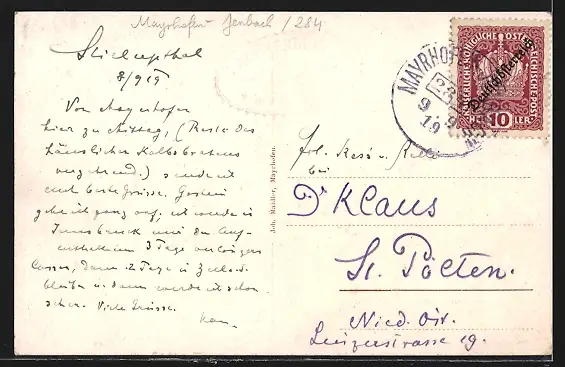 Mayrhofen Jenbach /284
Stillupptal
8/9 19
Von Mayrhofen
hier zu Mittag, (Reste des
häuslichen Kalbsbratens
verzehrend.) sende ich
euch beste Grüsse. Gastein
gebe ich ganz auf; ich werde in
Innsbruck mir den Auf-
enthalt um 3 Tage verlängern
lassen, dann 2 Tage in Zell a. S.
bleiben u. dann werde ich schon
sehen. Viele Grüsse.
Joh. Maidler, Mayrhofen.
MAYRHOF
9
19
KAISERLICHE KÖNIGLICHE ÖSTERREICHISCHE POST
Deutschösterreich
10
HELLER
bei
Dr Klaus
St. Pölten.
Nied. Öst.
Linzerstrasse 19.